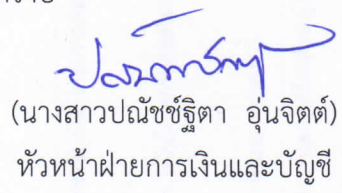 (นางสาวปณัชช์ฐิตา อุ่นจิตต์)
หัวหน้าฝ่ายการเงินและบัญชี